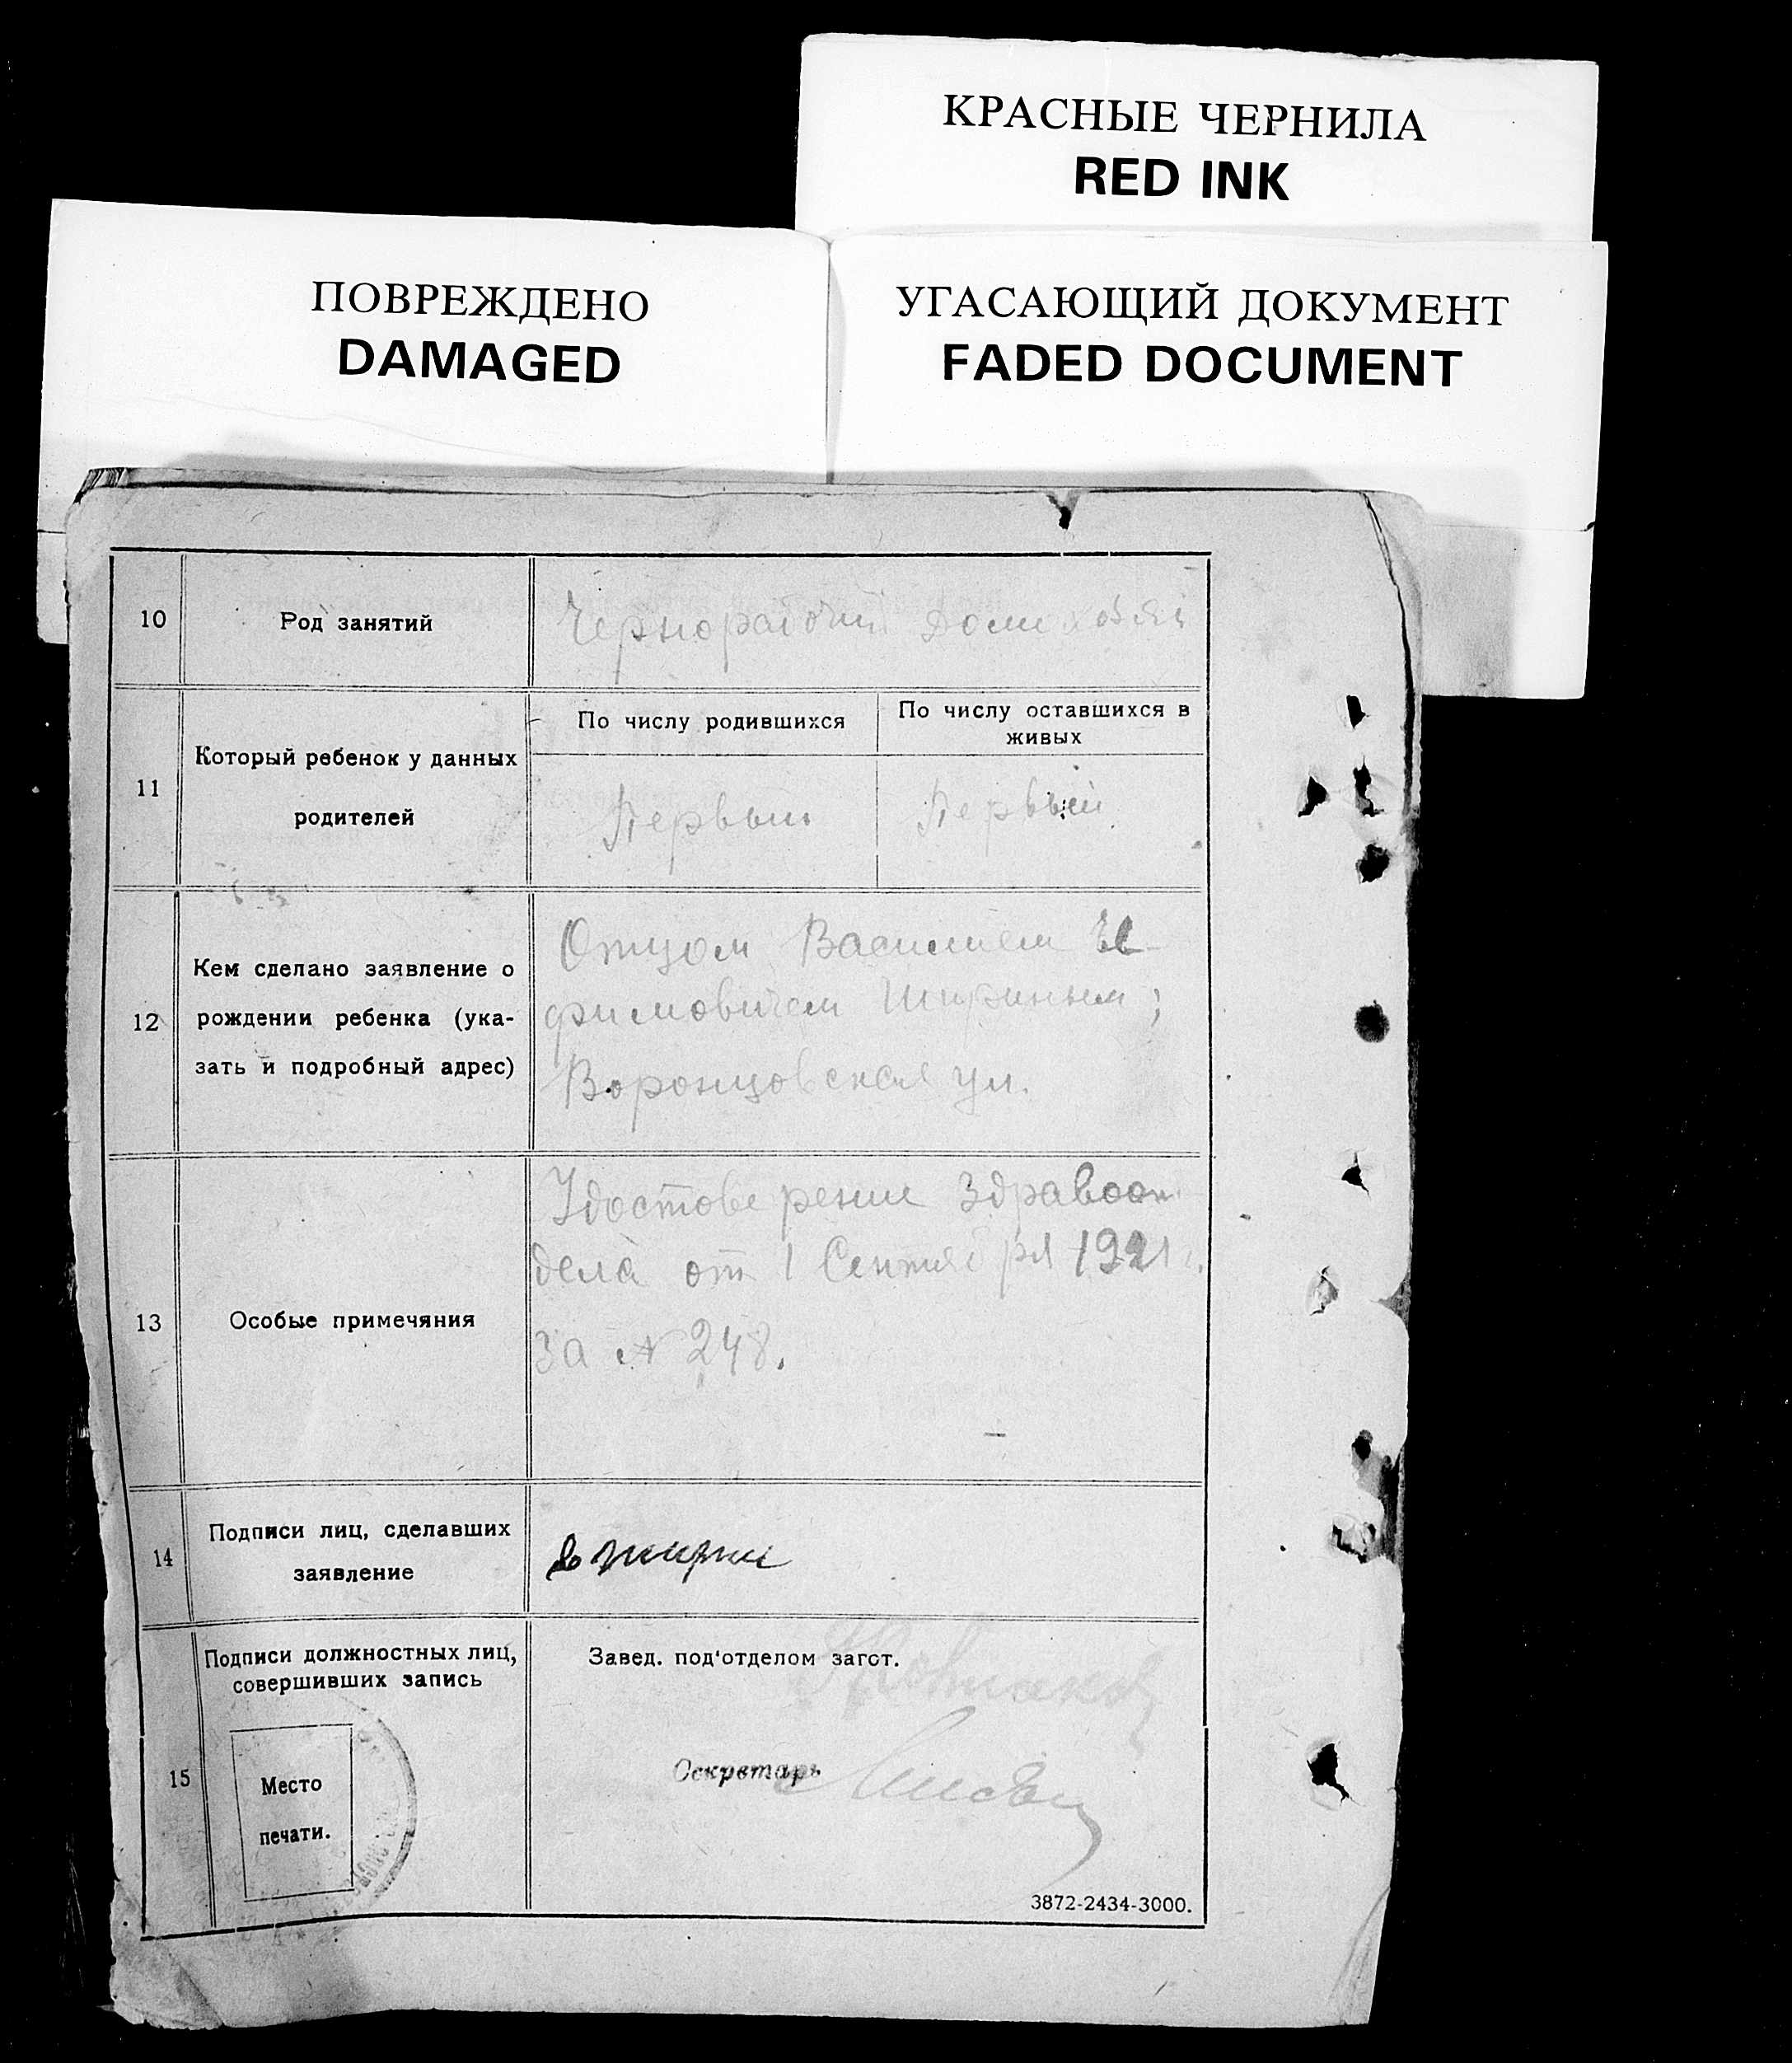 КРАСНЫЕ ЧЕРНИЛА
RED INK
ПОВРЕЖДЕНО
DAMAGED
УГАСАЮЩИЙ ДОКУМЕНТ
FADED DOCUMENT
10
Род занятий
Чернорабочий Домохозяй
11
Который ребенок у данных
родителей
По числу родившихся
По числу оставшихся в
живых
Первый
Первый
12
Кем сделано заявление о
рождении ребенка (ука-
зать и подробный адрес)
Отцом Василием Е
фимовичем Шириным;
Воронцовская ул.
13
Особые примечяния
Удостоверение Здравот
дела от 1 Сентября 1921 г.
за № 248.
14
Подписи лиц, сделавших
заявление
15
Подписи должностных лиц,
совершивших запись
Место
печати.
Завед. под'отделом загст.
Секретарь
3872-2434-3000.